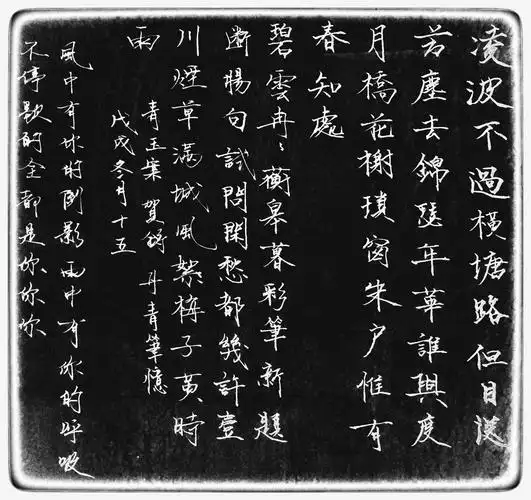 凌波不過橫塘路但目送
芳塵去錦瑟年華誰與度
月橋花榭瑣窗朱戶惟有
春知處
碧雲冉〻蘅皋暮彩筆新題
斷腸句試問閑愁都幾許壹
川煙草滿城風絮梅子黃時
雨
青玉案 賀鑄 丹青筆憶
戊戌冬月十五
風中有你的倒影雨中有你的呼吸
不停歇的全部是你你你